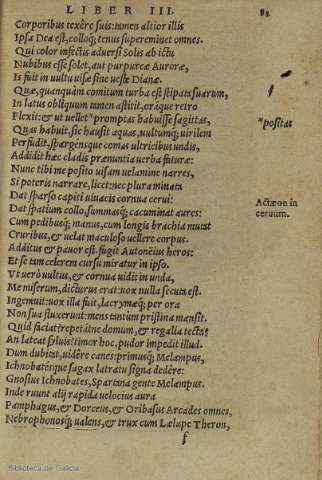 LIBER III. 85
Corporibus texêre suis: tamen altior illis
Ipsa Dea est, colloq; tenus supereminet omnes.
Qui color infectis aduersi Solis ab ictu
Nubibus esse solet, aut purpureæ Auroræ,
Is fuit in uultu uisæ sine ueste Dianæ.
Quæ, quanquàm comitum turba est stipata suarum,
In latus obliquum tamen astitit, oráque retro
Flexit: & ut uellet *promptas habuisse sagittas, *positas
Quas habuit, sic hausit aquas, uultumq; uirilem
Perfudit, spargensque comas ultricibus undis,
Addidit hæc cladis prænuntia uerba futuræ:
Nunc tibi me posito uisam uelamine narres,
Si poteris narrare, licet: nec plura minata
Dat sparso capiti uiuacis cornua cerui: Actæon in
Dat spatium collo, summasq; cacuminat aures: ceruum.
Cum pedibusq; manus, cum longis brachia mutat
Cruribus, & uelat maculoso uellere corpus.
Additus & pauor est. fugit Autoneïus heros:
Et se tam celerem cursu miratur in ipso.
Vt uerò uultus, & cornua uidit in unda,
Me miserum, dicturus erat: uox nulla secuta est.
Ingemuit: uox illa fuit, lacrymæq; per ora
Non sua fluxerunt: mens tantùm pristina mansit.
Quid faciat? repetátne domum, & regalia tecta?
An lateat syluis? timor hoc, pudor impedit illud.
Dum dubitat, uidêre canes: primusq; Melampus,
Ichnobatésque sagax latratu signa dedêre:
Gnosius Ichnobates, Spartana gente Melampus.
Inde ruunt alij rapida uelocius aura
Pamphagus, & Dorceus, & Oribasus Arcades omnes,
Nebrophonosq; ualens, & trux cum Lælape Theron,
f
Biblioteca de Galicia